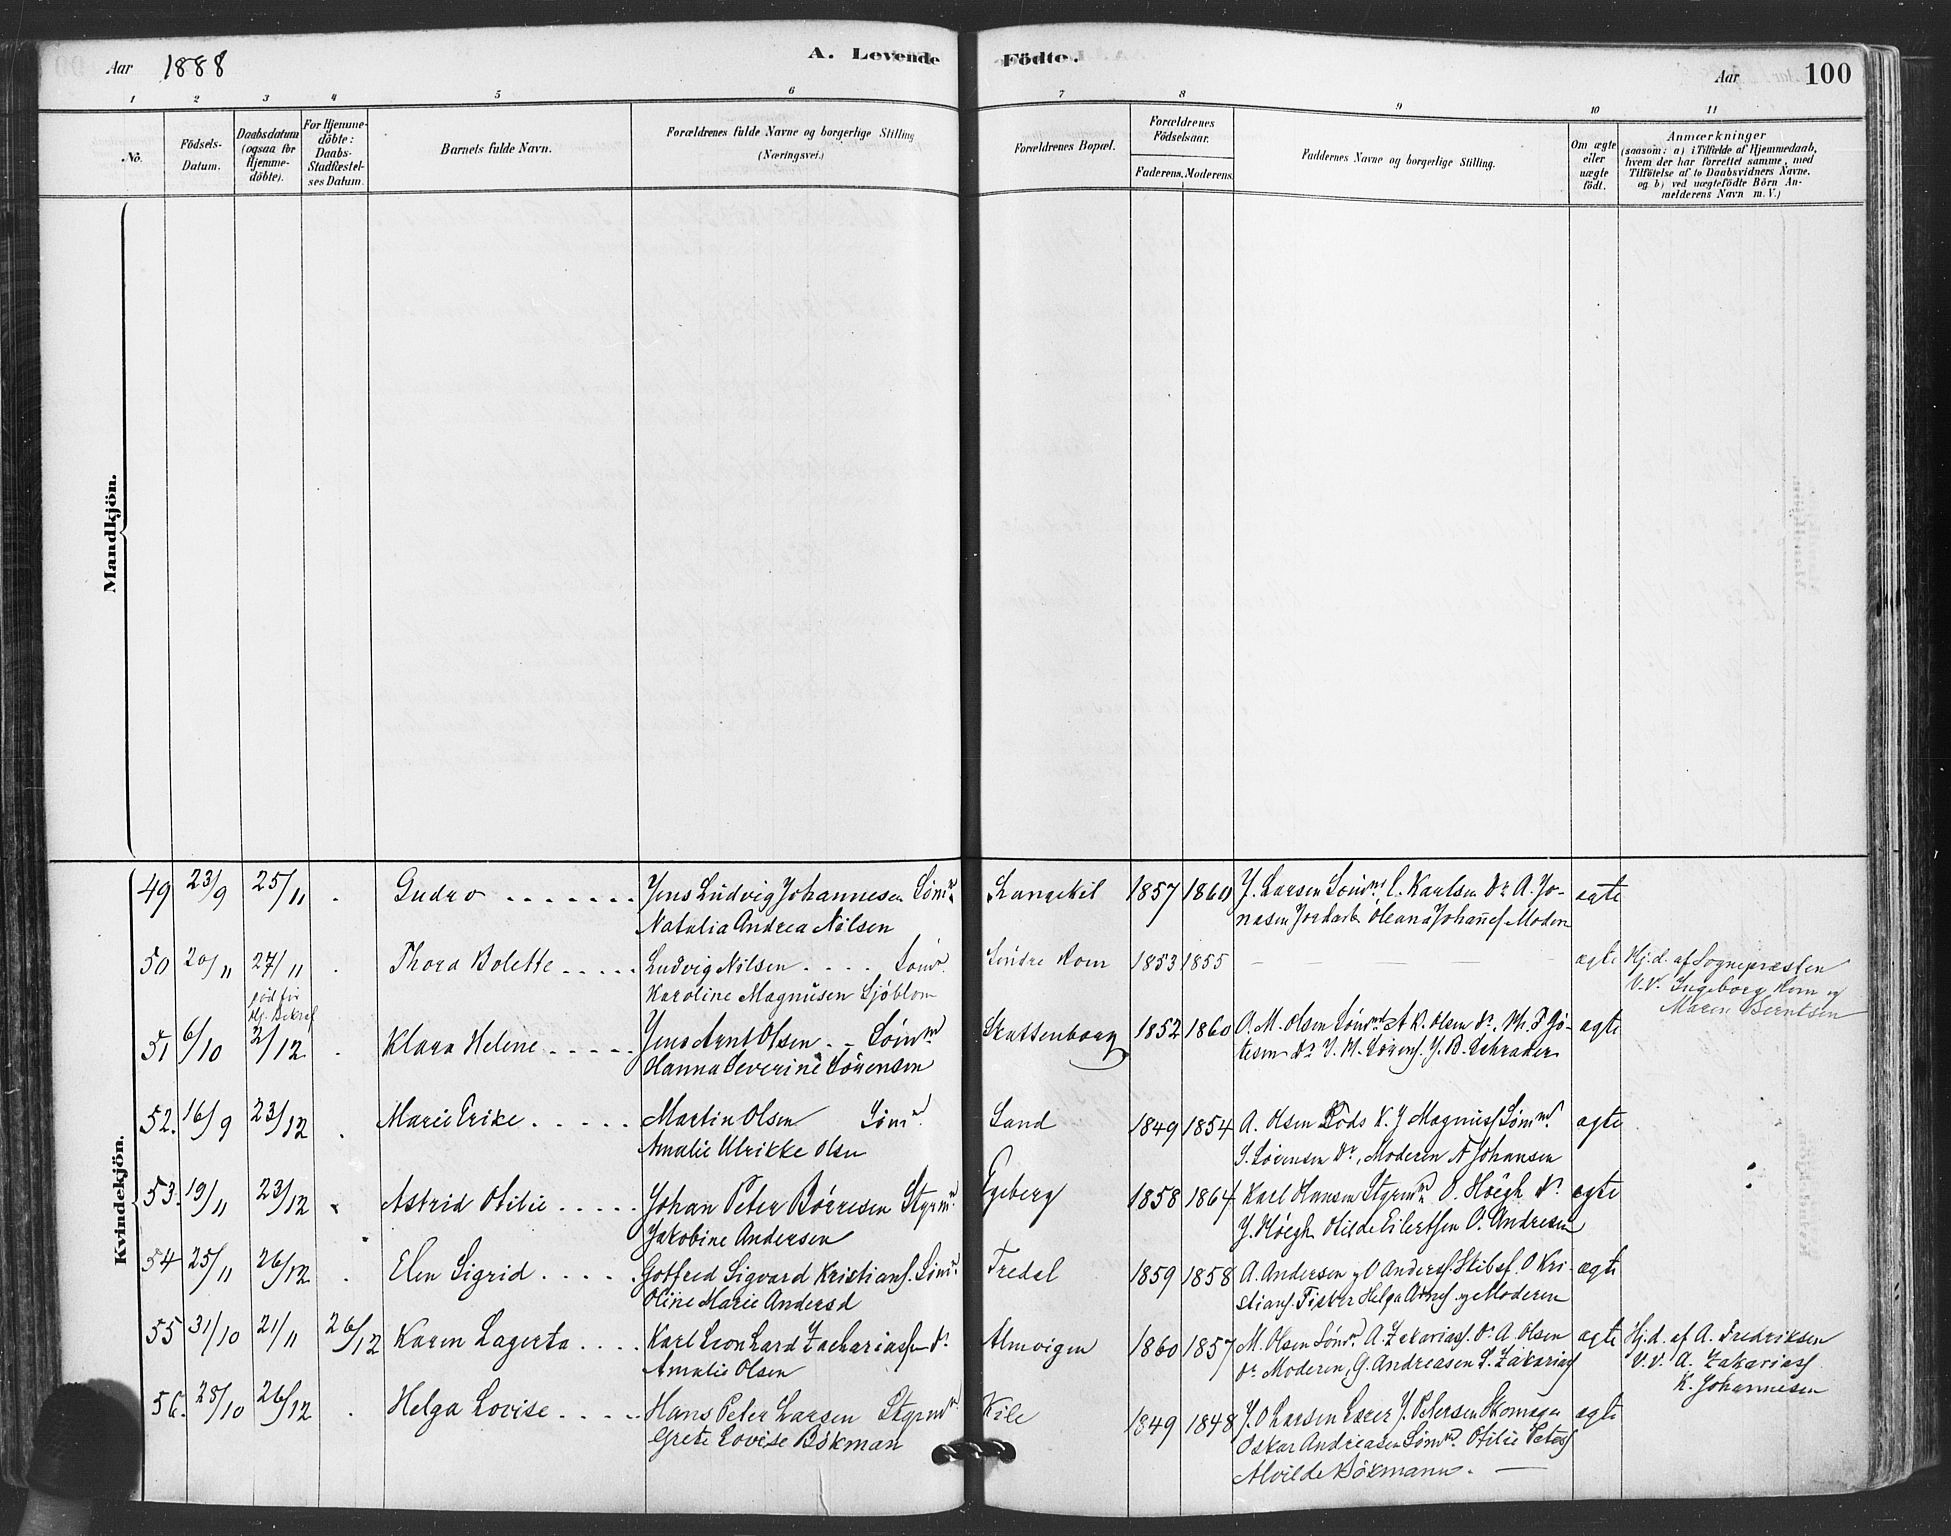 Aar 1888 A. Levende Födte. Aar 100
1 2 3 4 5 6 7 8 9 10 11
Nò.
Födsels-Datum.
Daabsdatum (ogsaa for Hjemme-döbte).
For Hjemme-döbte: Daabs-Stadfæstel-ses Datum.
Barnets fulde Navn.
Forældrenes fulde Navne og borgerlige Stilling (Næringsvei.)
Forældrenes Bopæl.
Forældrenes Födselsaar.
Faderens. Moderens.
Faddernes Navne og borgerlige Stilling.
Om ægte eller uægte födt.
Anmærkninger
(saasom: a) i Tilfælde af Hjemmedaab,
hvem der har forrettet samme, med
Tilföielse af to Daabsvidners Navne,
og b) ved uægtefödte Börn An-
melderens Navn m. V.)
Mandkjön.
Kvindekjön.
49 23/9 25/11 . Gudro Jens Ludvig Johannesen Söm. Langekil 1857 1860 J. Larsen Sömd. C. Karlsen Do A. Jo- ægte
Natalia Andrea Nilsen nasen Jordarb Oleana Johannes Moderen
50 20/11 27/11 . Thora Bolette Ludvig Nilsen Söm. Söndre Rom 1853 1855 — — — ægte Hj.d. af Sognepræsten
död før Hj. Bekræf Karoline Magnusen Sjöblom V.V. Ingeborg Rom og
Maren Berntsen
51 6/10 2/12 . Klara Helene Jens Arnt Olsen Sömd Skattenborg 1852 1860 O. M. Olsen Sömd A K. Olsen Do. M. T Gjö- ægte
Hanna Severine Sörensen tesen Do J. M. Sörens. J. B. Schrader
52. 16/9 23/12 . Marie Erike Martin Olsen Sömd. Sand 1849 1854 A. Olsen Lods K. J Magnuss Sömd. ægte
Amalie Ulrikke Olsen S. Sörensen Do, Moderen A Johansen
53. 19/11 23/12 . Astrid Otilie Johan Peter Börresen Styrm. Egeberg 1858 1864 Karl Hansen Styrmd O. Höegh Do. ægte
Jakobine Andersen J. Höegh Otilde Eilertsen O. Andresen
54 25/11 26/12 . Elen Sigrid Gotfred Sigvard Kristians. Sömd. Fredel 1859 1858 A. Andersen og O Anders. Skibsf. O Kri- ægte
Oline Marie Andersd stians. Fisker Helga Arnes og Moderen
55 31/10 21/11 26/12 Karen Lagerta Karl Leonhard Zachariassen Do. Almvigen 1860 1857 M. Olsen Sömd. A. Zakarias. Do A. Olsen ægte Hj.d. af A. Fredriksen
Amalie Olsen Do. Moderen, G. Andreasen S. Zakarias V.V. A. Zakarias
K. Johannesen
56. 28/10 26/12 . Helga Lovise Hans Peter Larsen Styrmd. Kile 1849 1848 J. O Larsen Lærer J. Petersen Skomager ægte
Grete Lovise Bökman Oskar Andreasen Sömd. Otilie Peters
Alvilde Bökmann. —